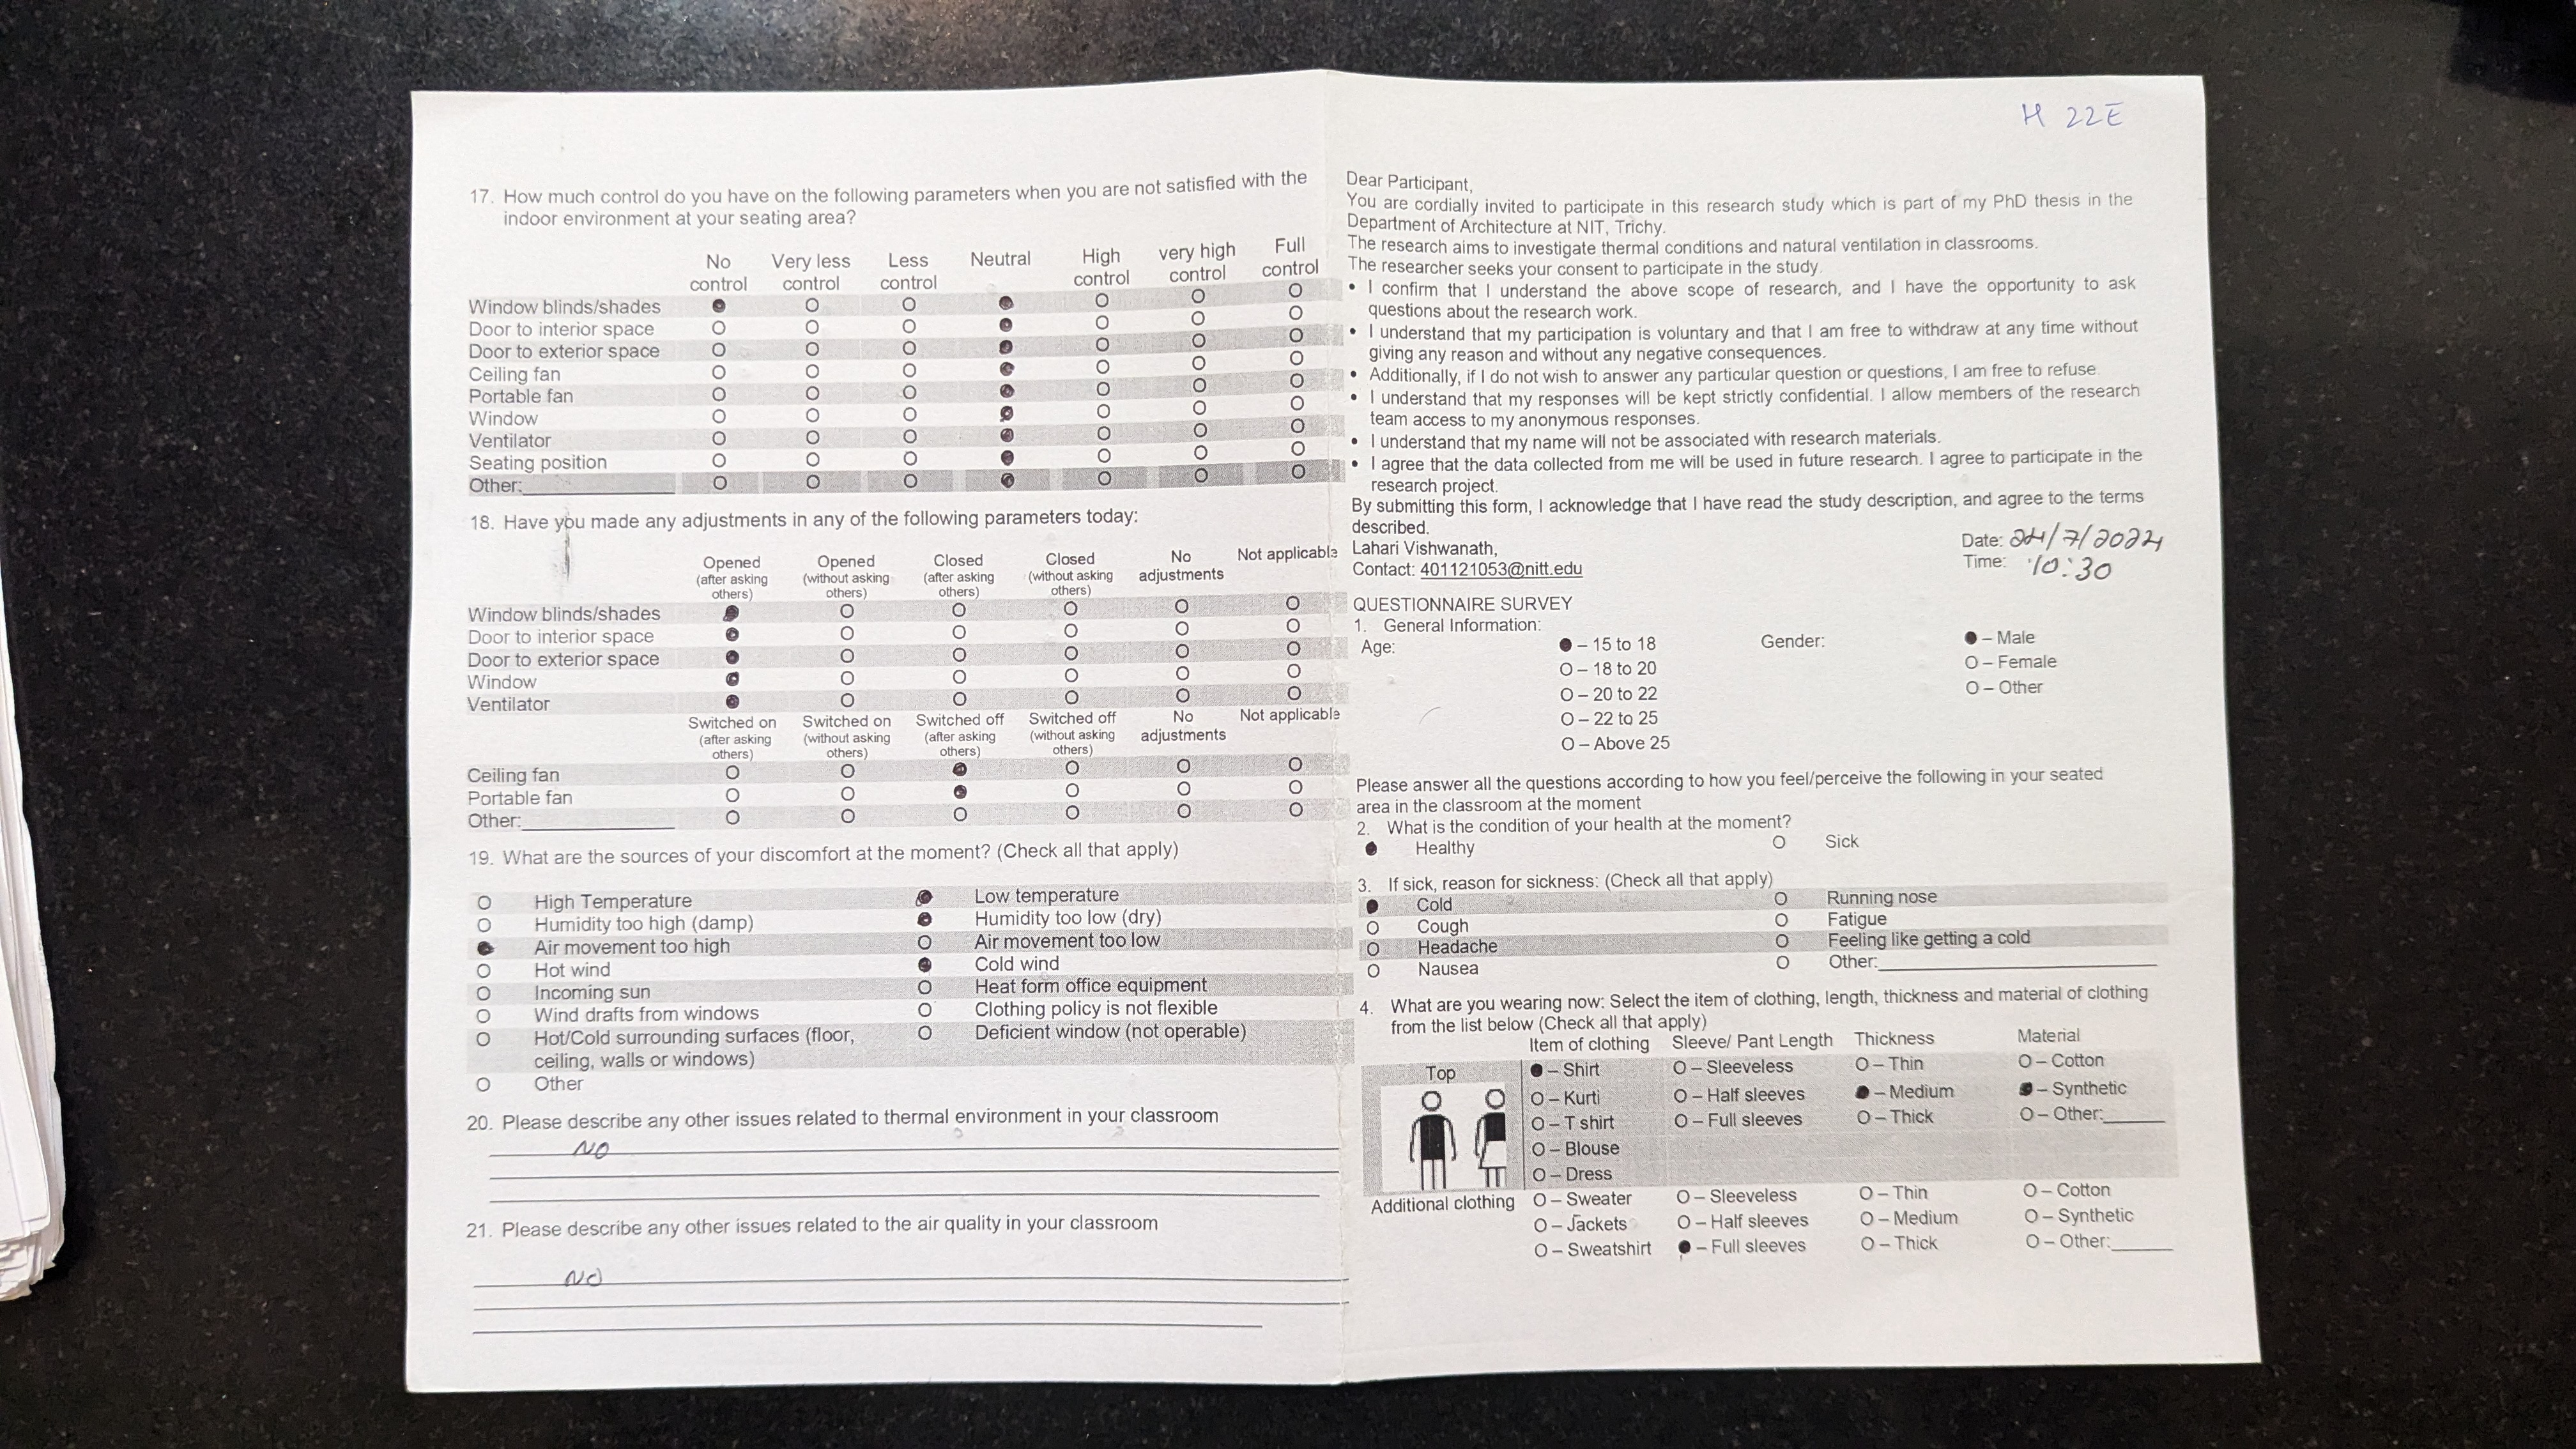 17. How much control do you have on the following parameters when you are not satisfied with the
indoor environment at your seating area?
No control Very less control Less control Neutral High control very high control Full control
Window blinds/shades ● O O ● O O O
Door to interior space O O O ● O O O
Door to exterior space O O O ● O O O
Ceiling fan O O O ● O O O
Portable fan O O O ● O O O
Window O O O ● O O O
Ventilator O O O ● O O O
Seating position O O O ● O O O
Other:__________ O O O ● O O O
18. Have you made any adjustments in any of the following parameters today:
Opened (after asking others) Opened (without asking others) Closed (after asking others) Closed (without asking others) No adjustments Not applicable
Window blinds/shades ● O O O O O
Door to interior space ● O O O O O
Door to exterior space ● O O O O O
Window ● O O O O O
Ventilator ● O O O O O
Switched on (after asking others) Switched on (without asking others) Switched off (after asking others) Switched off (without asking others) No adjustments Not applicable
Ceiling fan O O ● O O O
Portable fan O O ● O O O
Other:__________ O O O O O O
19. What are the sources of your discomfort at the moment? (Check all that apply)
O High Temperature ● Low temperature
O Humidity too high (damp) ● Humidity too low (dry)
● Air movement too high O Air movement too low
O Hot wind ● Cold wind
O Incoming sun O Heat form office equipment
O Wind drafts from windows O Clothing policy is not flexible
O Hot/Cold surrounding surfaces (floor, O Deficient window (not operable)
ceiling, walls or windows)
O Other
20. Please describe any other issues related to thermal environment in your classroom
NO
21. Please describe any other issues related to the air quality in your classroom
NO
H 22E
Dear Participant,
You are cordially invited to participate in this research study which is part of my PhD thesis in the
Department of Architecture at NIT, Trichy.
The research aims to investigate thermal conditions and natural ventilation in classrooms.
The researcher seeks your consent to participate in the study.
• I confirm that I understand the above scope of research, and I have the opportunity to ask
questions about the research work.
• I understand that my participation is voluntary and that I am free to withdraw at any time without
giving any reason and without any negative consequences.
• Additionally, if I do not wish to answer any particular question or questions, I am free to refuse
• I understand that my responses will be kept strictly confidential. I allow members of the research
team access to my anonymous responses.
• I understand that my name will not be associated with research materials.
• I agree that the data collected from me will be used in future research. I agree to participate in the
research project.
By submitting this form, I acknowledge that I have read the study description, and agree to the terms
described.
Lahari Vishwanath, Date: 24/7/2024
Contact: 401121053@nitt.edu Time: 10:30
QUESTIONNAIRE SURVEY
1. General Information:
Age: ● – 15 to 18 Gender: ● – Male
O – 18 to 20 O – Female
O – 20 to 22 O – Other
O – 22 to 25
O – Above 25
Please answer all the questions according to how you feel/perceive the following in your seated
area in the classroom at the moment
2. What is the condition of your health at the moment?
● Healthy O Sick
3. If sick, reason for sickness: (Check all that apply)
● Cold O Running nose
O Cough O Fatigue
O Headache O Feeling like getting a cold
O Nausea O Other:__________
4. What are you wearing now: Select the item of clothing, length, thickness and material of clothing
from the list below (Check all that apply)
Item of clothing Sleeve/ Pant Length Thickness Material
Top ● – Shirt O – Sleeveless O – Thin O – Cotton
O – Kurti O – Half sleeves ● – Medium ● – Synthetic
O – T shirt O – Full sleeves O – Thick O – Other:______
O – Blouse
O – Dress
Additional clothing O – Sweater O – Sleeveless O – Thin O – Cotton
O – Jackets O – Half sleeves O – Medium O – Synthetic
O – Sweatshirt ● – Full sleeves O – Thick O – Other:______